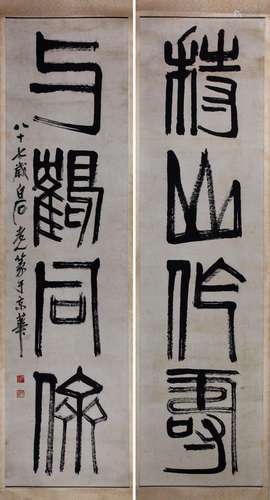 持山作壽
与鶴同儕
八十七歲白石老人篆于京華